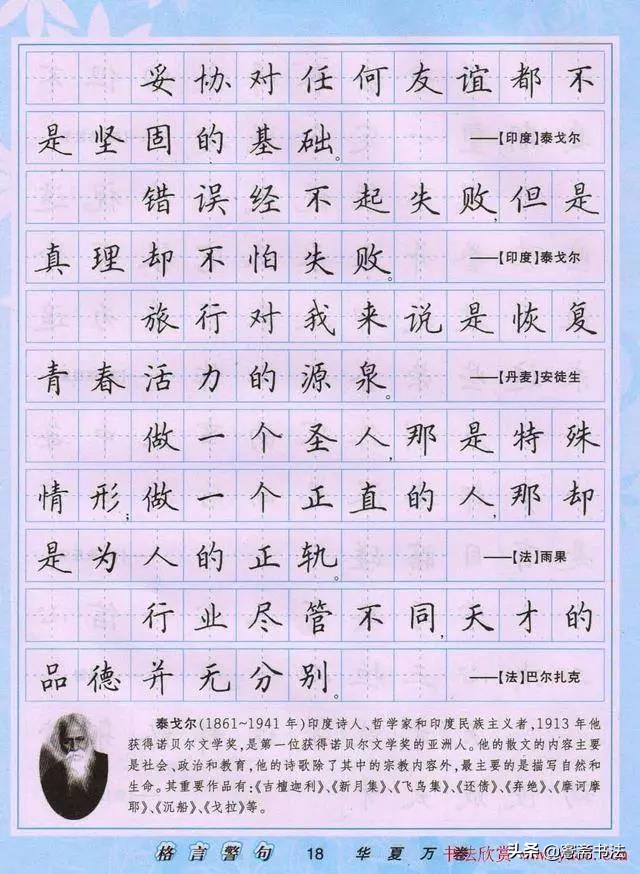 妥协对任何友谊都不
是坚固的基础。——【印度】泰戈尔
错误经不起失败,但是
真理却不怕失败。——【印度】泰戈尔
旅行对我来说是恢复
青春活力的源泉。——【丹麦】安徒生
做一个圣人,那是特殊
情形;做一个正直的人,那却
是为人的正轨。——【法】雨果
行业尽管不同,天才的
品德并无分别。——【法】巴尔扎克
泰戈尔(1861~1941年)印度诗人、哲学家和印度民族主义者,1913年他
获得诺贝尔文学奖,是第一位获得诺贝尔文学奖的亚洲人。他的散文的内容主要
是社会、政治和教育,他的诗歌除了其中的宗教内容外,最主要的是描写自然和
生命。其重要作品有:《吉檀迦利》、《新月集》、《飞鸟集》、《还债》、《弃绝》、《摩诃摩
耶》、《沉船》、《戈拉》等。
格言警句 18 华夏万卷 书法欣赏 头条@鸳斋书法